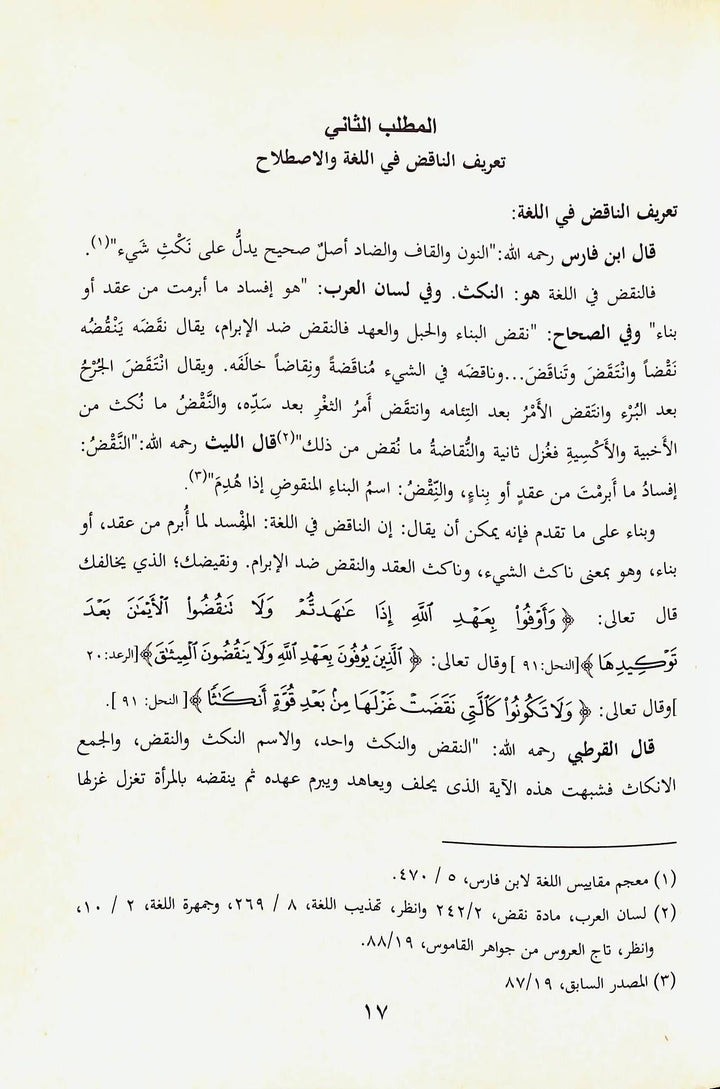 المطلب الثاني
تعريف الناقض في اللغة والاصطلاح
تعريف الناقض في اللغة:
قال ابن فارس رحمه الله:"النون والقاف والضاد أصلٌ صحيح يدلُّ على نَكْثِ شَيء"(١).
فالنقض في اللغة هو: النكث. وفي لسان العرب: "هو إفساد ما أبرمت من عقد أو
بناء" وفي الصحاح: "نقض البناء والحبل والعهد فالنقض ضد الإبرام، يقال نقضَه يَنْقُضُه
نَقْضاً وانْتَقَضَ وتَناقَضَ...وناقضَه في الشيء مُناقَضةً ونِقاضاً خالَفَه. ويقال انْتَقَضَ الجُرْحُ
بعد البُرْء وانتَقض الأمْرُ بعد التِئامه وانتقَض أمرُ الثغْرِ بعد سَدِّه، والنَّقْضُ ما نُكث من
الأخبية والأَكْسِيةِ فغُزل ثانية والنُّقاضةُ ما نُقض من ذلك"(٢)قال الليث رحمه الله:"النَّقْضُ:
إفسادُ ما أَبرمْتَ من عقدٍ أو بِناءٍ، والنِّقْضُ: اسمُ البناءِ المنقوضِ إذا هُدِمَ"(٣).
وبناء على ما تقدم فإنه يمكن أن يقال: إن الناقض في اللغة: المُفْسد لما أُبرم من عقد، أو
بناء، وهو بمعنى ناكث الشيء، وناكث العقد والنقض ضد الإبرام. ونقيضك؛ الذي يخالفك
قال تعالى: ﴿ وَأَوْفُوا۟ بِعَهْدِ ٱللَّهِ إِذَا عَٰهَدتُّمْ وَلَا تَنقُضُوا۟ ٱلْأَيْمَٰنَ بَعْدَ
تَوْكِيدِهَا ﴾[النحل:٩١ ] وقال تعالى: ﴿ ٱلَّذِينَ يُوفُونَ بِعَهْدِ ٱللَّهِ وَلَا يَنقُضُونَ ٱلْمِيثَٰقَ﴾[الرعد:٢٠
]وقال تعالى: ﴿ وَلَا تَكُونُوا۟ كَٱلَّتِى نَقَضَتْ غَزْلَهَا مِنۢ بَعْدِ قُوَّةٍ أَنكَٰثًا ﴾[ النحل: ٩١ ].
قال القرطبي رحمه الله: "النقض والنكث واحد، والاسم النكث والنقض، والجمع
الانكاث فشبهت هذه الآية الذى يحلف ويعاهد ويبرم عهده ثم ينقضه بالمرأة تغزل غزلها
(١) معجم مقاييس اللغة لابن فارس، ٥ / ٤٧٠.
(٢) لسان العرب، مادة نقض، ٢٤٢/٢ وانظر، تهذيب اللغة، ٨ / ٢٦٩، وجمهرة اللغة، ٢ / ١٠،
وانظر، تاج العروس من جواهر القاموس، ٨٨/١٩.
(٣) المصدر السابق، ٨٧/١٩
١٧